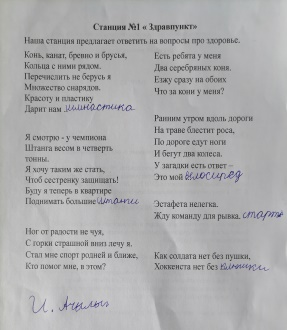 Станция №1 « Здравпункт»
Наша станция предлагает ответить на вопросы про здоровье.
Конь, канат, бревно и брусья,
Кольца с ними рядом.
Перечислить не берусь я
Множество снарядов.
Красоту и пластику
Дарит нам гимнастика
Я смотрю - у чемпиона
Штанга весом в четверть
тонны.
Я хочу таким же стать,
Чтоб сестренку защищать!
Буду я теперь в квартире
Поднимать большие штанги
Ног от радости не чуя,
С горки страшной вниз лечу я.
Стал мне спорт родней и ближе,
Кто помог мне, в этом?
Есть ребята у меня
Два серебряных коня.
Езжу сразу на обоих
Что за кони у меня?
Ранним утром вдоль дороги
На траве блестит роса,
По дороге едут ноги
И бегут два колеса.
У загадки есть ответ –
Это мой
Эстафета нелегка.
Жду команду для рывка,
Как солдата нет без пушки,
Хоккеиста нет без клюшки
И.